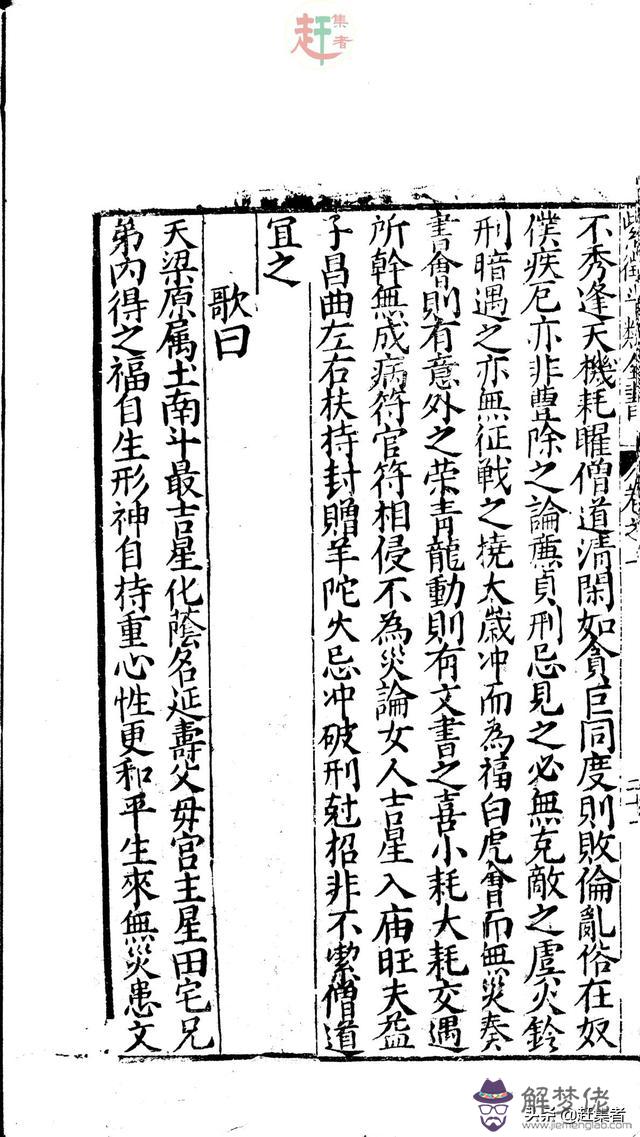 赶集者
不秀逢天機耗曜僧道清閑如貪巨同度則敗倫亂俗在奴
僕疾厄亦非豊除之論廉貞刑忌見之必無克敵之虞火鈴
刑暗遇之亦無征戰之撓太歲冲而為福白虎會而無災奏
書會則有意外之荣青龍動則有文書之喜小耗大耗交遇
所幹無成病符官符相侵不為災論女人吉星入庙旺夫益
子昌曲左右扶持封贈羊陀火忌冲破刑尅招非不潔僧道
宜之
歌曰
天梁原属土南斗最吉星化蔭名延壽父母宮主星田宅兄
弟内得之福自生形神自持重心性更和平生來無災患文
解梦佬
www.jiemenglao.com
头条@赶集者